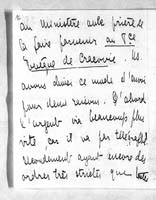 au ministre avec prière de
la faire parvenir au Pce
Evêque de Cracovie. Ils
avons choisi ce mode d'envoi
pour deux raisons. D'abord
l'argent va beaucoup plus
vite car il va par télégraphe
secondement ayant encore des
ordres très strictes que